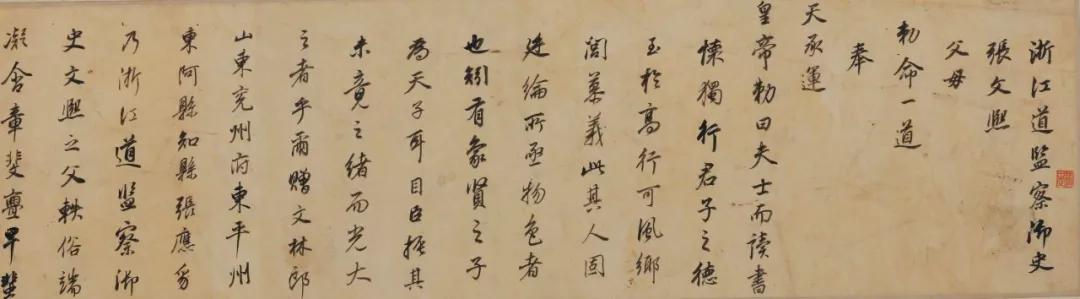 浙江道監察御史
張文熙
父母
勅命一道
奉
天承運
皇帝勅曰夫士而讀書
懷獨行君子之德
至於高行可風鄉
閭慕義此其人固
廷綸所亟物色者
也矧有象賢之子
為天子耳目臣振其
未竟之緒而光大
之者乎爾贈文林郎
山東兗州府東平州
東阿縣知縣張應
乃浙江道監察御
史文熙之父軼俗端
凝含章斐亹早蜚